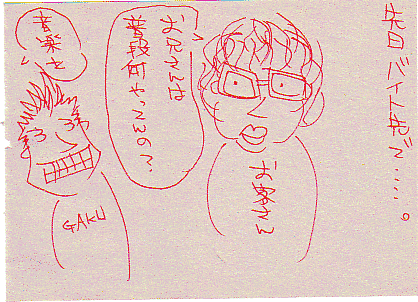 先日バイト先で……。
お客さん
お兄さんは
普段何やってんの?
音楽を
GAKU